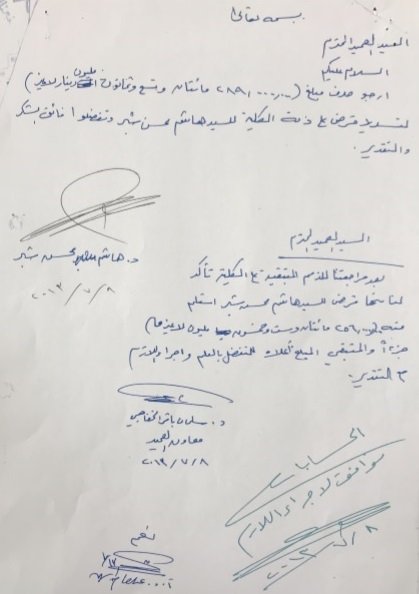 بسمه تعالى
السيد العميد المحترم
السلام عليكم
ارجو صرف مبلغ (٢٨٩,٠٠٠,٠٠٠ مائتان وتسع وثمانون مليون دينار لاغير)
لتسديد قرض على ذمة الكلية للسيد هاشم محسن شبر وتفضلوا فائق الشكر
والتقدير.
د. هاشم محسن شبر
٢٠١٣/٧/٨
السيد العميد المحترم
بعد مراجعتنا للمتبقية على الكلية تأكد
لنا قرض السيد هاشم محسن شبر استلم
منه مائتان وست وخمسون مليون لاغيرها
جزءاً والمتبقي المبلغ أعلاه للتفضل بالعلم واجراء اللازم
مع التقدير.
د. سلمان باقر الخفاجي
معاون العميد
٢٠١٣/٧/٨
الحسابات
موافق لاجراء اللازم
نعم